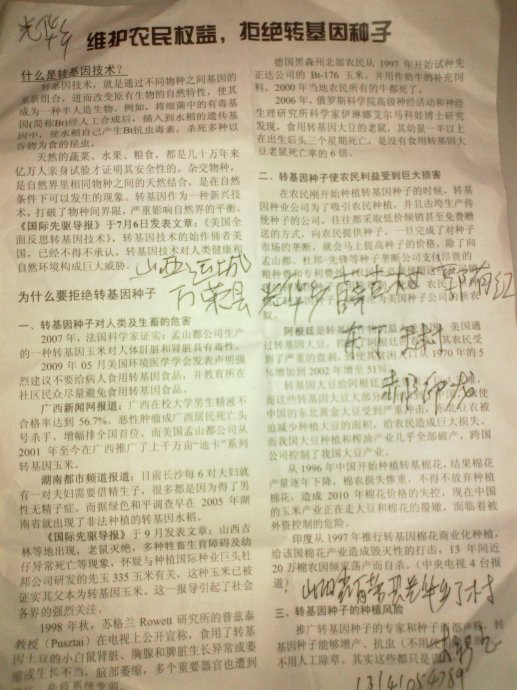 光华乡
维护农民权益，拒绝转基因种子
什么是转基因技术？
转基因技术，就是通过不同物种之间基因的
重新组合，进而改变原有生物的自然特性，使其
成为一种半人造生物。例如，将细菌中的有毒基
因(简称Bt)经人工合成后，插入到水稻的遗传基
因中，使水稻自己产生Bt抗虫毒素，杀死多种以
谷物为食的昆虫。
天然的蔬菜、水果、粮食，都是几十万年来
亿万人亲身试验才证明其安全性的。杂交物种，
是自然界里相同物种之间的天然结合，是在自然
条件下可以发生的现象。转基因作为一种新兴技
术，打破了物种间界限，严重影响自然界的平衡。
《国际先驱导报》于7月6日发表文章：《美国全
面反思转基因技术》，转基因技术的始作俑者美
国，已经不得不承认，转基因技术对人类健康和
自然环境构成巨大威胁。
山西运城
万荣县 光华乡
为什么要拒绝转基因种子
一、转基因种子对人类及生畜的危害
2007年，法国科学家证实：孟山都公司生产
的一种转基因玉米对人体肝脏和肾脏具有毒性。
2009年05月美国环境医学学会发表声明强
烈建议不要给病人食用转基因食品，并教育所在
社区民众尽量避免食用转基因食品。
广西新闻网报道：广西在校大学男生精液不
合格率达到56.7%。恶性肿瘤成广西居民死亡头
号杀手，增幅排全国首位。而美国孟山都公司从
2001年至今在广西推广了上千万亩“迪卡”系列
转基因玉米。
湖南都市频道报道：目前长沙每6对夫妇就
有一对夫妇需要借精生子，很多都是因为得了男
性无精子症。而据绿色和平调查早在2005年湖
南省就出现了非法种植的转基因水稻。
《国际先驱导报》于9月发表文章：山西吉
林等地出现，老鼠灭绝，多种牲畜生育障碍及幼
仔异常死亡等现象，怀疑与种植国际种业巨头杜
邦公司研发的先玉335玉米有关，这种玉米已被
证实其父本为转基因玉米。这一报导引起了社会
各界的强烈关注。
1998年秋，苏格兰Rowett研究所的普兹泰
教授（Pusztai）在电视上公开宣称，食用了转基
因土豆的小白鼠肾脏、胸腺和脾脏生长异常或萎
缩或生长不当，脑部萎缩，多个重要器官也遭到
德国黑森州北部农民从1997年开始试种先
正达公司的Bt-176玉米，并用作奶牛的补充饲
料，2000年当地农民所有的牛都死了。
2006年，俄罗斯科学院高级神经活动和神经
生理研究所科学家伊琳娜艾尔马科娃博士研究
发现，食用转基因大豆的老鼠，其幼鼠一半以上
在出生后头三个星期死亡，是没有食用转基因大
豆老鼠死亡率的6倍。
二、转基因种子使农民利益受到巨大损害
在农民刚开始种植转基因种子的时候，转基
因种业公司为了吸引农民种植，并且击垮生产传
统种子的公司，往往都采取低价倾销甚至免费赠
送的方式，向农民提供种子。一旦完成了对种子
市场的垄断，就会马上提高种子的价格。除了向
孟山都、杜邦-先锋等种子垄断公司支付昂贵的
1970年的5%
增加到2002年增至51%。
中国的东北黄金大豆受到严重冲击，东北豆农被
迫减少种植大豆的面积，给农民造成巨大损失。
而我国大豆种植和榨油产业几乎全部破产，跨国
公司控制了我国大豆产业。
从1996年中国开始种植转基因棉花，结果棉花
产量逐年下降，棉农损失惨重，不得不放弃种植
棉花，造成2010年棉花价格的失控，现在中国
的玉米产业正在走大豆和棉花的覆辙，面临着被
外资控制的危险。
印度从1997年推行转基因棉花商业化种植，
给该国棉花产业造成毁灭性的打击，13年间近
20万棉农因倾家荡产而自杀。（中央电视4台报
道）
三、转基因种子的种植风险
推广转基因种子的专家和种子商都声称，转
基因种子能够增产、抗虫
不用人工除草。其实这些都只是